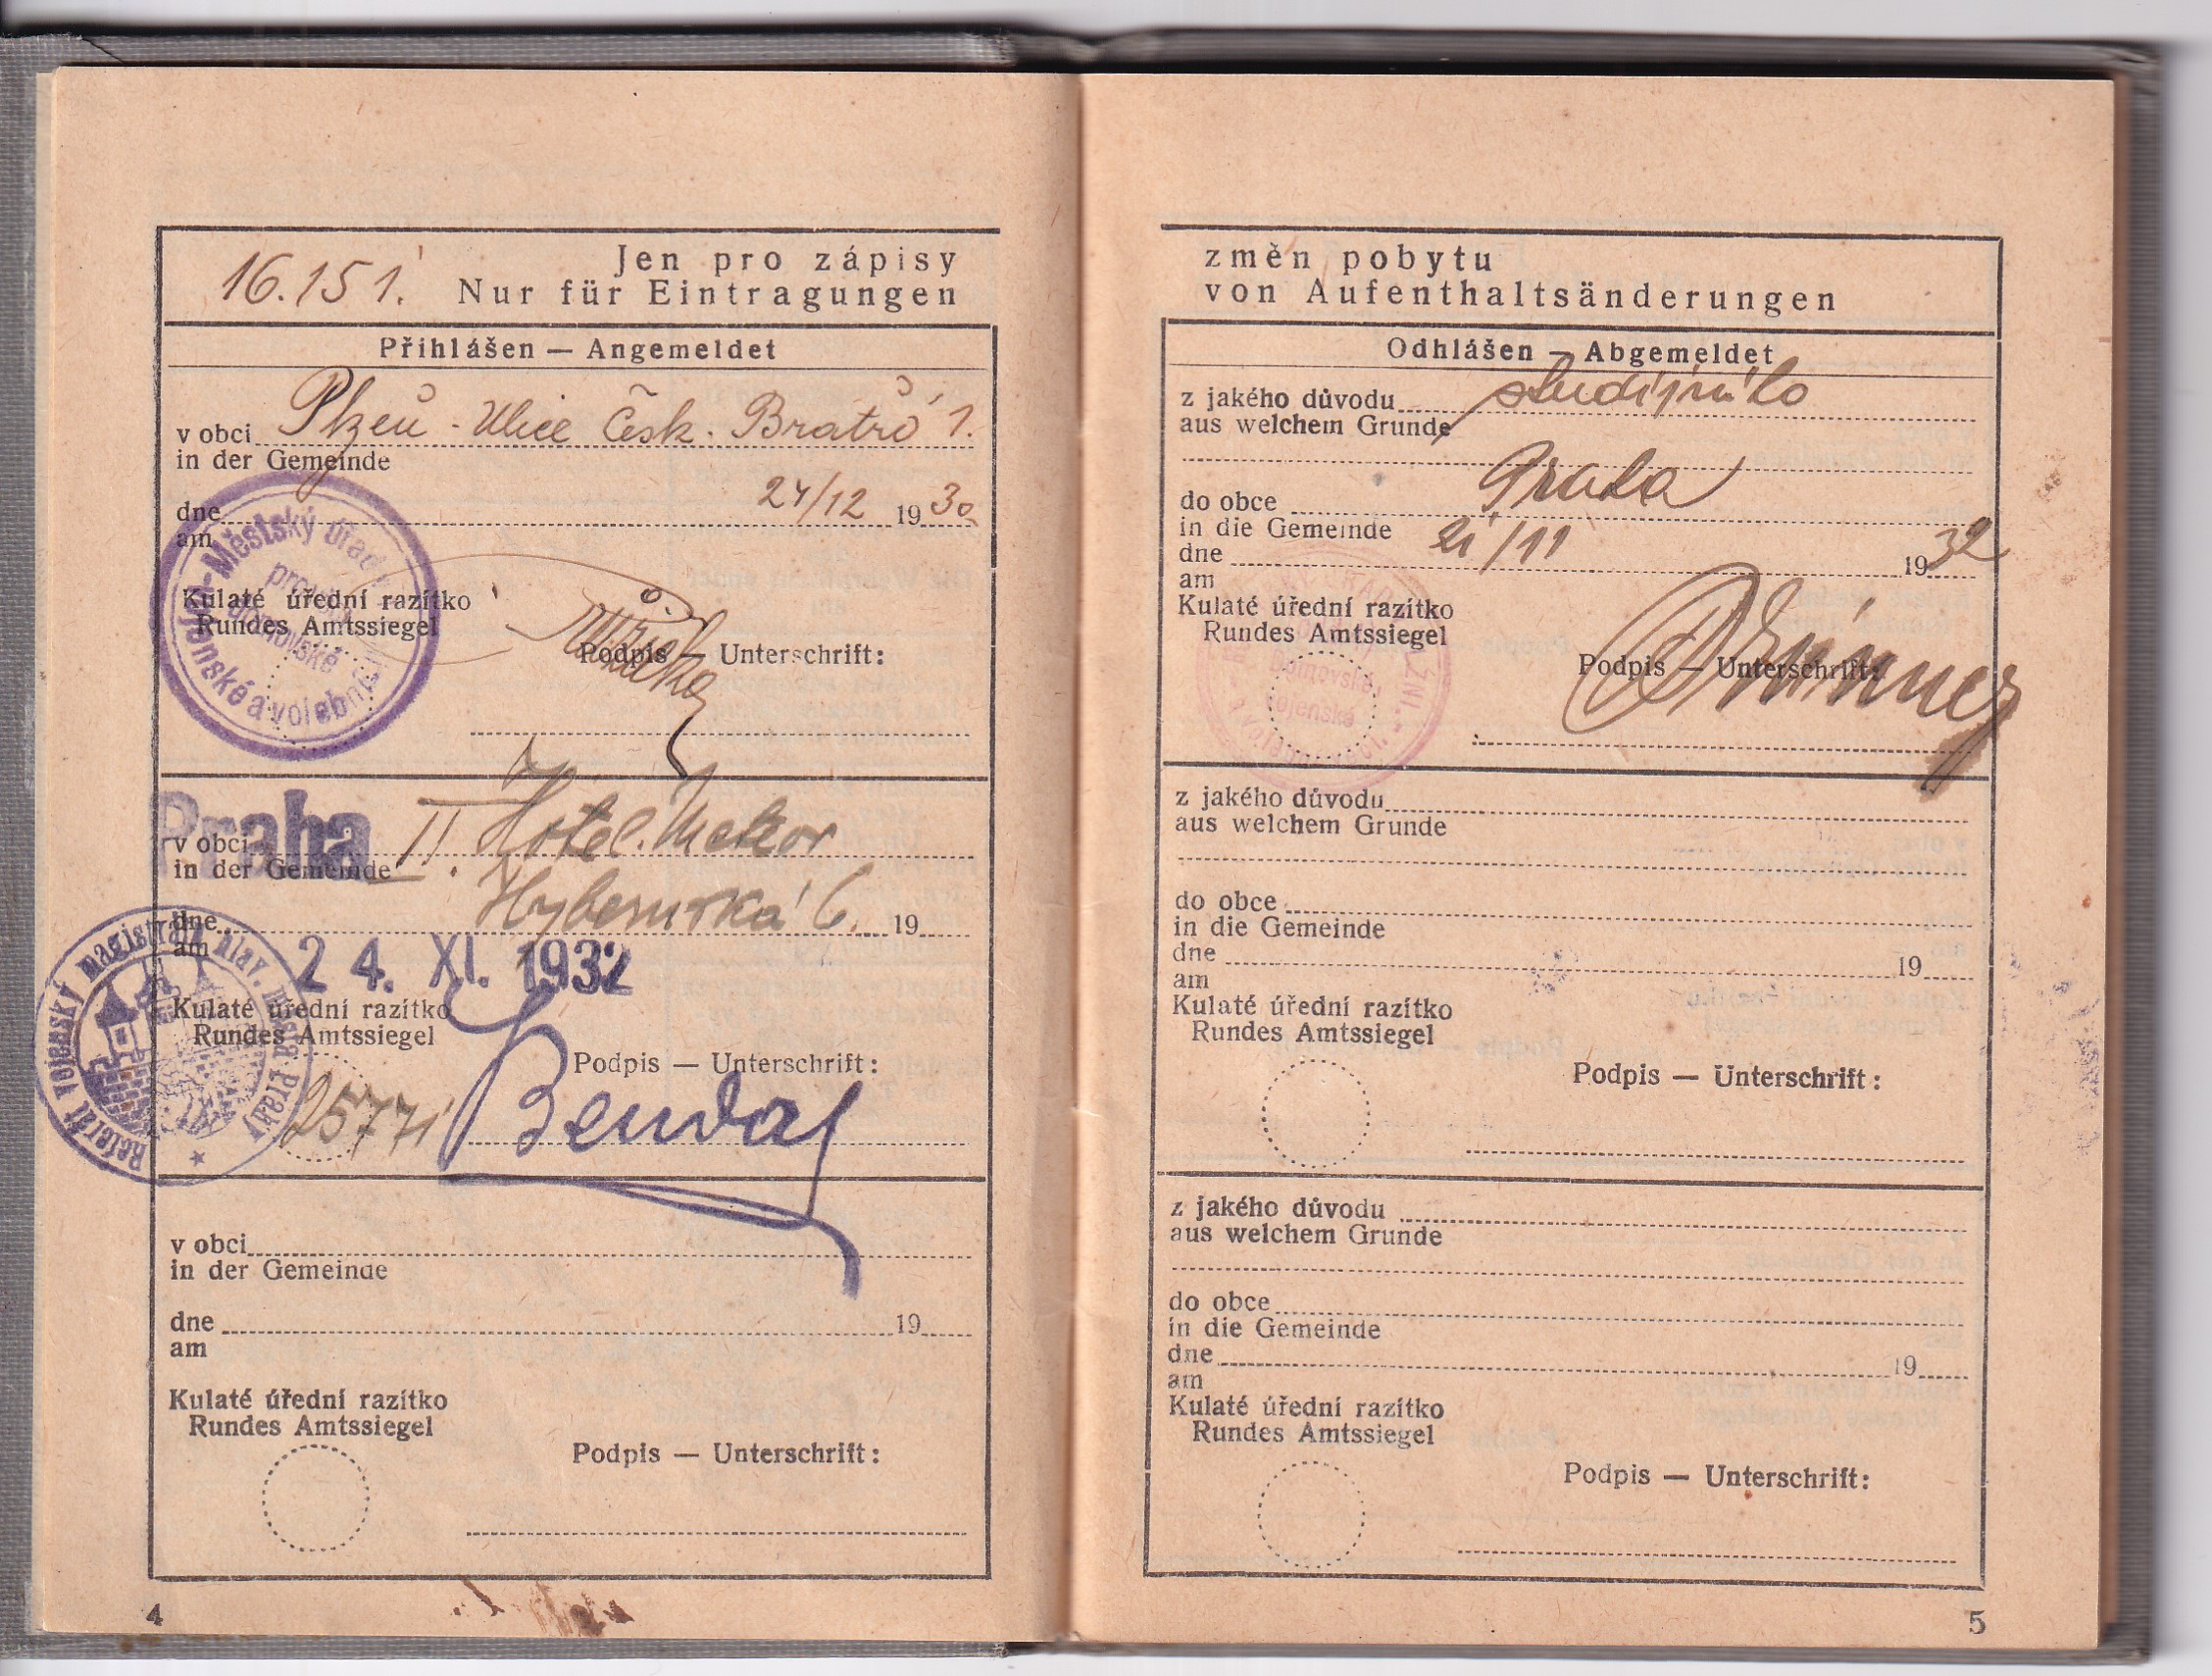 16.151.
Jen pro zápisy
Nur für Eintragungen
Přihlášen — Angemeldet
v obci Plzeň - Ulice Česk. Bratrů 1.
in der Gemeinde
dne 24/12 1930
am
Městský úřad
vojenské a volební
domovské
Kulaté úřední razítko
Rundes Amtssiegel
Podpis — Unterschrift:
Růžička
Praha II. Hotel. Meteor
v obci
in der Gemeinde
Hybernská 6.
dne 19
am
24. XI. 1932
Referát vojenský magistrátu hlav. města Prahy
Kulaté úřední razítko
Rundes Amtssiegel
Podpis — Unterschrift:
Benda
v obci
in der Gemeinde
dne 19
am
Kulaté úřední razítko
Rundes Amtssiegel
Podpis — Unterschrift:
4
změn pobytu
von Aufenthaltsänderungen
Odhlášen — Abgemeldet
z jakého důvodu
aus welchem Grunde
do obce Praha
in die Gemeinde
dne /11 1932
am
Kulaté úřední razítko
Rundes Amtssiegel
Domovské,
vojenské
Podpis — Unterschrift:
z jakého důvodu
aus welchem Grunde
do obce
in die Gemeinde
dne 19
am
Kulaté úřední razítko
Rundes Amtssiegel
Podpis — Unterschrift:
z jakého důvodu
aus welchem Grunde
do obce
in die Gemeinde
dne 19
am
Kulaté úřední razítko
Rundes Amtssiegel
Podpis — Unterschrift:
5